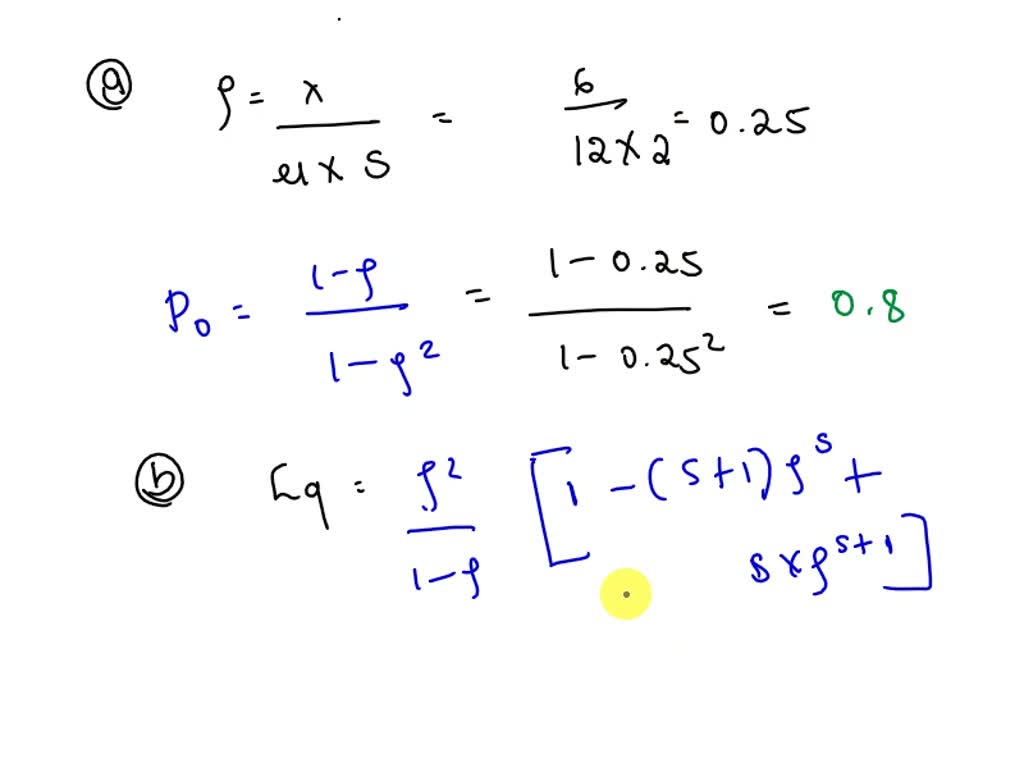 (a) ρ = x / (μ x S) = 6 / (12 x 2) = 0.25
P0 = (1-ρ) / (1-ρ²) = (1-0.25) / (1-0.25²) = 0.8
(b) Lq = ρ² / (1-ρ) [1 - (S+1) ρ^S +
S x ρ^(S+1)]